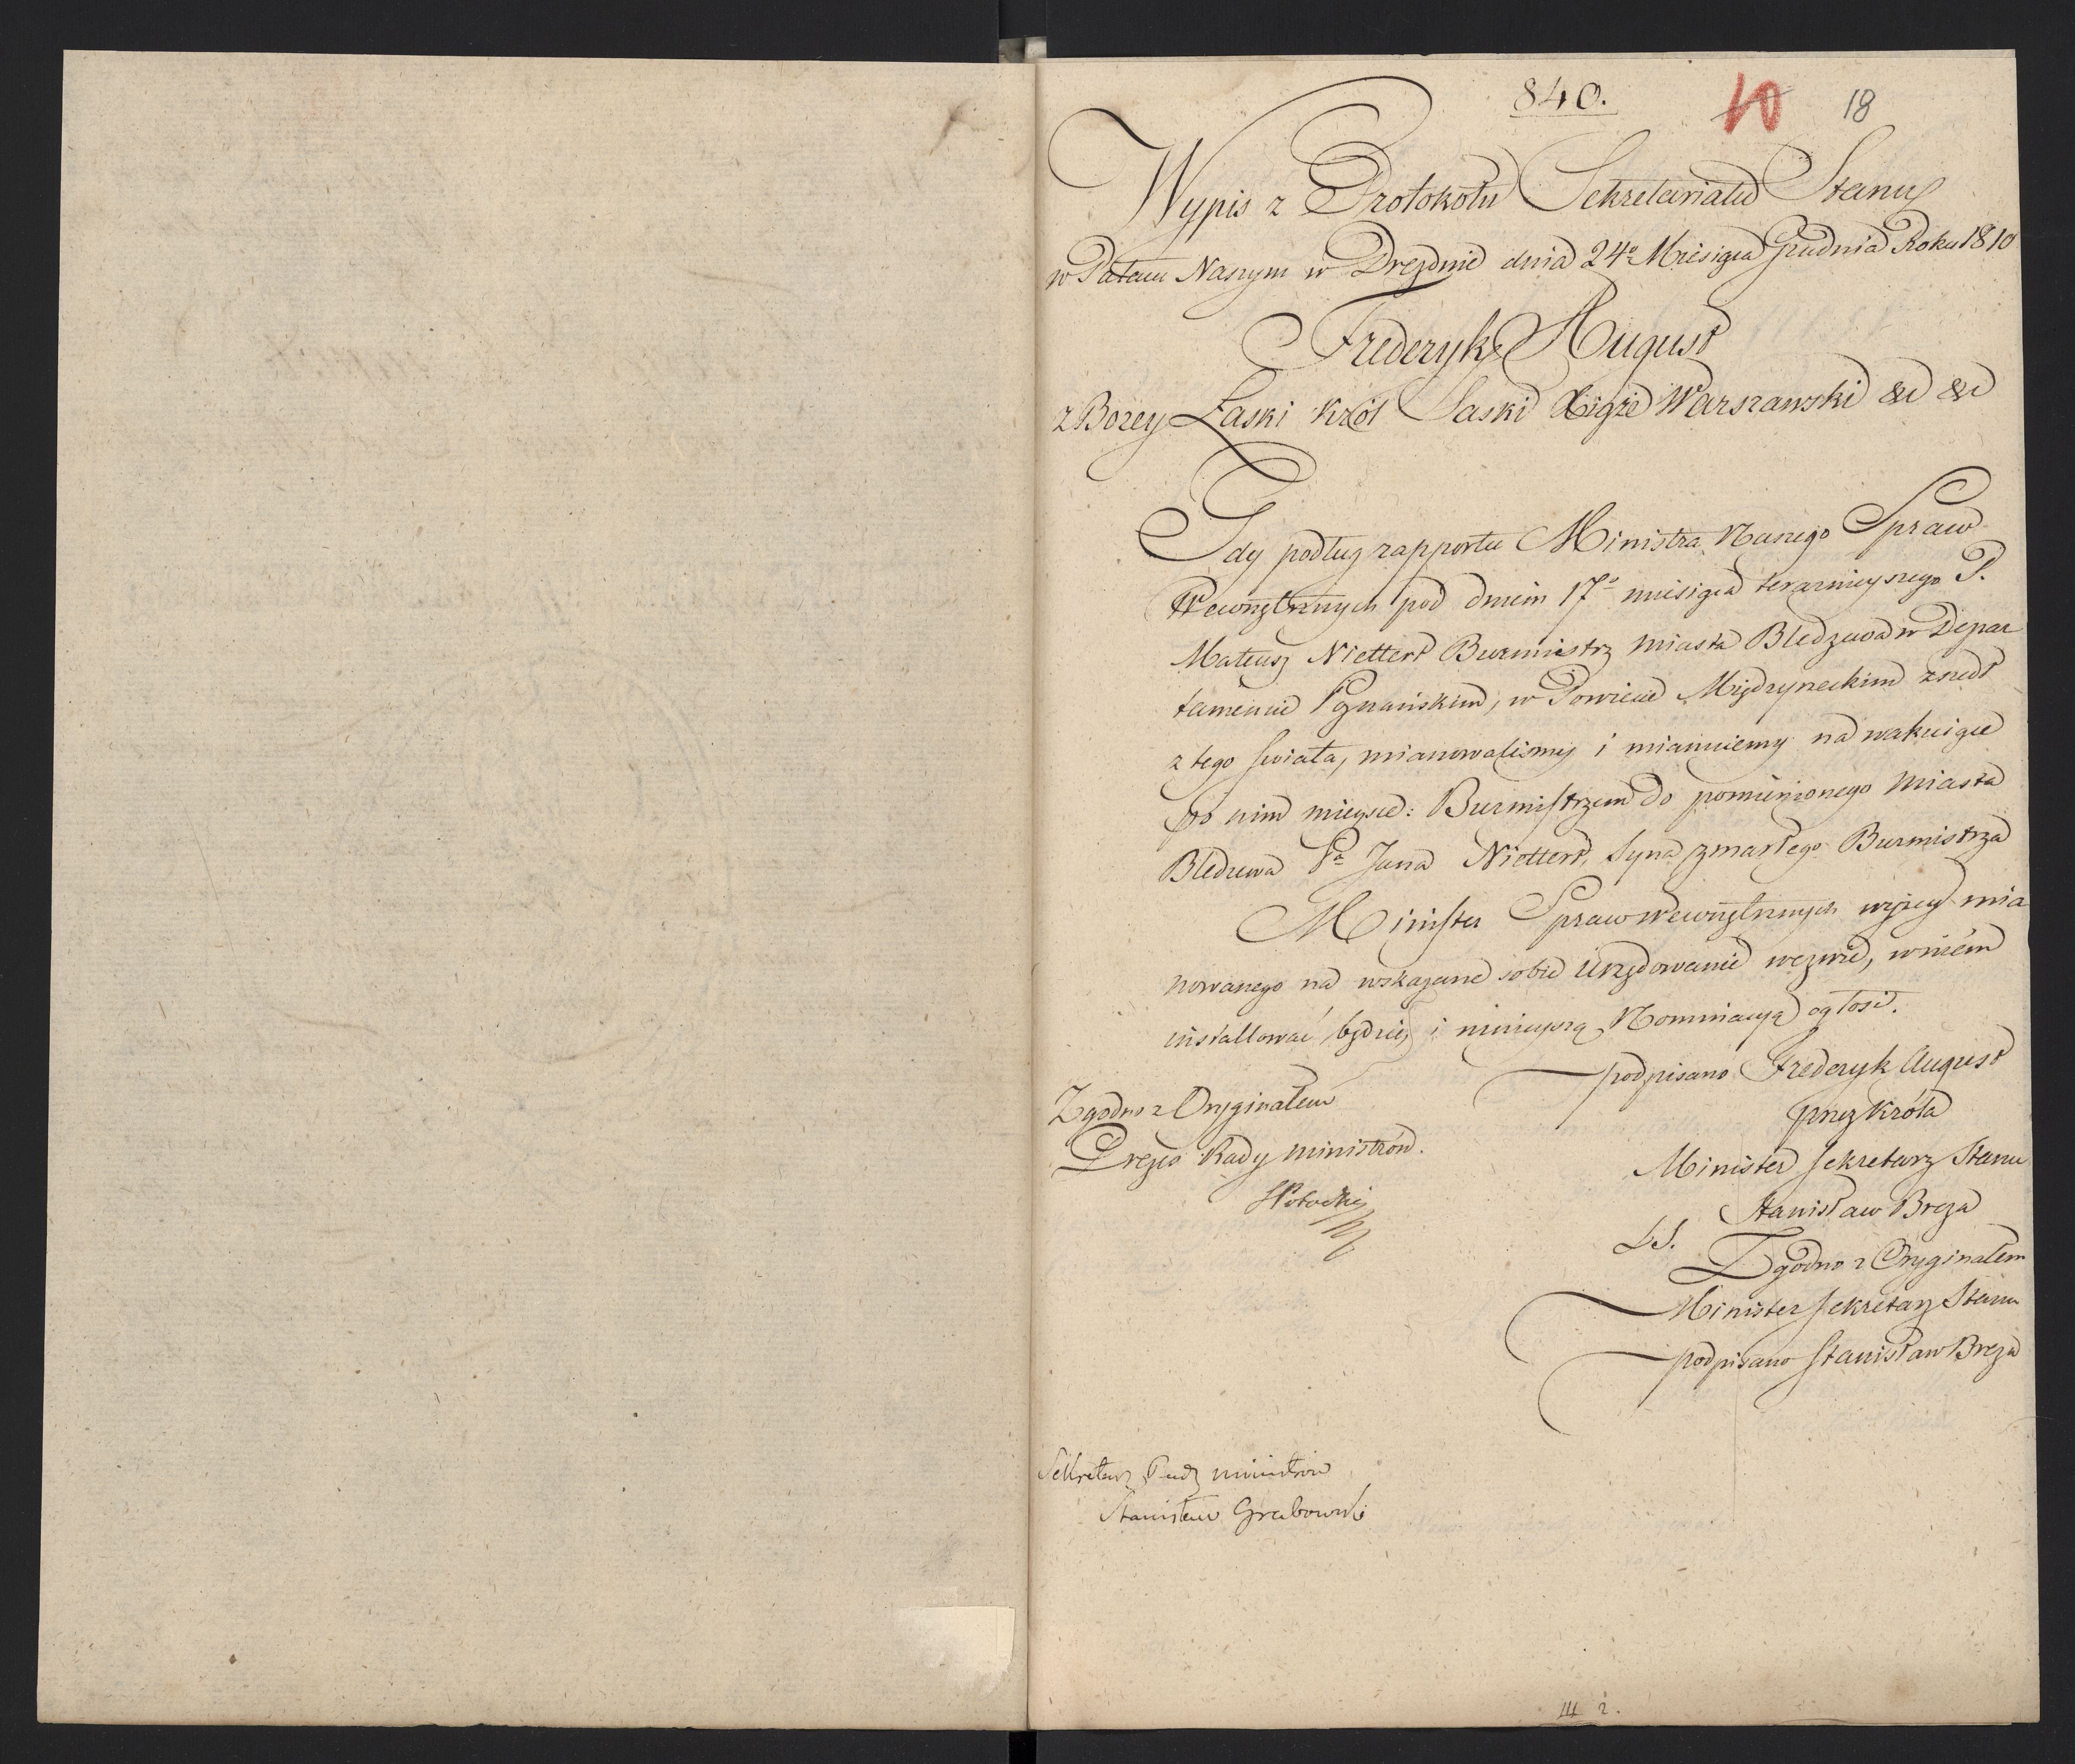 840.
10 18
Wypis z Protokołu Sekretariatu Stanu
w Pałacu Naszym w Dreźnie dnia 24º Miesiąca Grudnia Roku 1810
Frederyk August
z Bożey Łaski Król Saski Xiąże Warszawski &c &c
Gdy podług rapportu Ministra Naszego Spraw
Wewnętrznych pod dniem 17º miesiąca teraznieyszego P.
Mateusz Niettert Burmistrz miasta Bledzewa w Depar
tamencie Poznańskim, w Powiecie Międzyrzeckim zszedł
z tego świata, mianowaliśmy i mianuiemy na wakuiące
po nim mieysce: Burmistrzem do pomienionego Miasta
Bledzewa Pa Jana Niettert, Syna zmarłego Burmistrza
Minister Spraw Wewnętrznych wyżey mia
nowanego na wskazane sobie Urzędowanie wezwie, w niem
installować będzie, i ninieyszą Nominacyą ogłosi.
podpisano Frederyk August
przez Króla
Minister Sekretarz Stanu
Stanisław Breza
LS.
Zgodno z Oryginałem
Minister Sekretarz Stanu
podpisano Stanisław Breza
Zgodno z Oryginałem
Prezes Rady Ministrów.
SPotocki
Sekretarz Rady ministrow
Stanisław Grabowski
III 2.